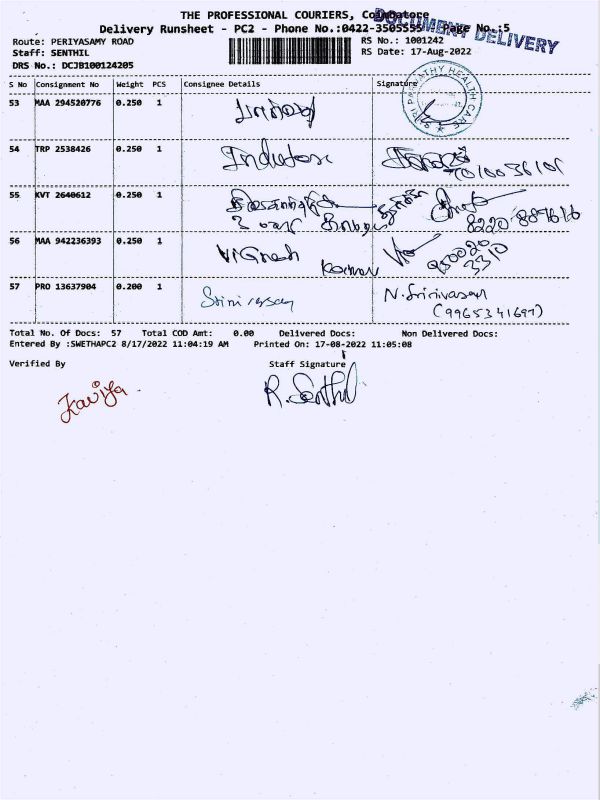 THE PROFESSIONAL COURIERS, Coimbatore
DOCUMENT DELIVERY
Delivery Runsheet - PC2 - Phone No.:0422-3505555 Page No.:5
Route: PERIYASAMY ROAD RS No.: 1001242
Staff: SENTHIL RS Date: 17-Aug-2022
DRS No.: DCJB100124205
S No Consignment No Weight PCS Consignee Details Signature
53 MAA 294520776 0.250 1
HEALTH CARE
54 TRP 2538426 0.250 1
55 KVT 2640612 0.250 1
56 MAA 942236393 0.250 1 Vignesh Kannan 95002 3310
57 PRO 13637904 0.200 1 Srinivasan N.Srinivasan
(9965341697)
Total No. Of Docs: 57 Total COD Amt: 0.00 Delivered Docs: Non Delivered Docs:
Entered By :SWETHAPC2 8/17/2022 11:04:19 AM Printed On: 17-08-2022 11:05:08
Verified By Staff Signature
Kaviya R.Senthil